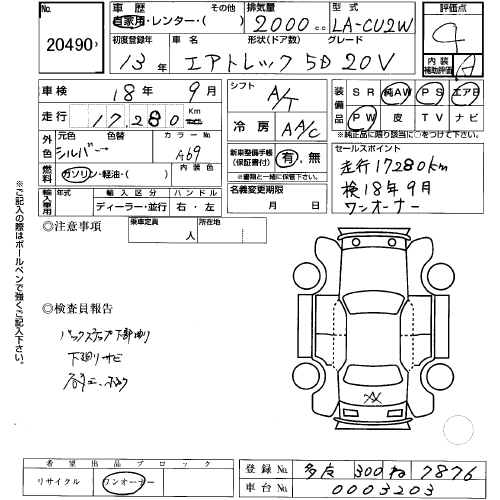 No. 20490
車歴 その他
自家用・レンター・( )
排気量
2000 cc
型式
LA-CU2W
評価点
4
初度登録年
13年
車名
エアトレック
形状(ドア数)
5D
グレード
20V
内装補助評価
A
車検 18年 9月
走行 17,280 Km
シフト
A/T
冷房
AAC
装備品
SR 純AW PS エアB
PW 皮 TV ナビ
*純正品に限り該当に○をつけて下さい。
外色
元色 色替
シルバー
カラーNo.
A69
燃料
ガソリン・軽油・( )
内装色
新車整備手帳(保証書付)
有・無
*書類と一緒に保管して下さい。
セールスポイント
走行17280km
検18年9月
ワンオーナー
輸入車用
年式 輸入区分 ハンドル
ディーラー・並行 右・左
名義変更期限
月 日
◎注意事項
乗車定員
人
所在地
※ご記入の際はボールペンで強くご記入下さい。
◎検査員報告
下廻りサビ
A
希望出品ブロック
リサイクル ワンオーナー
登録No. 多摩 300 ね 7876
車台No. 0003203